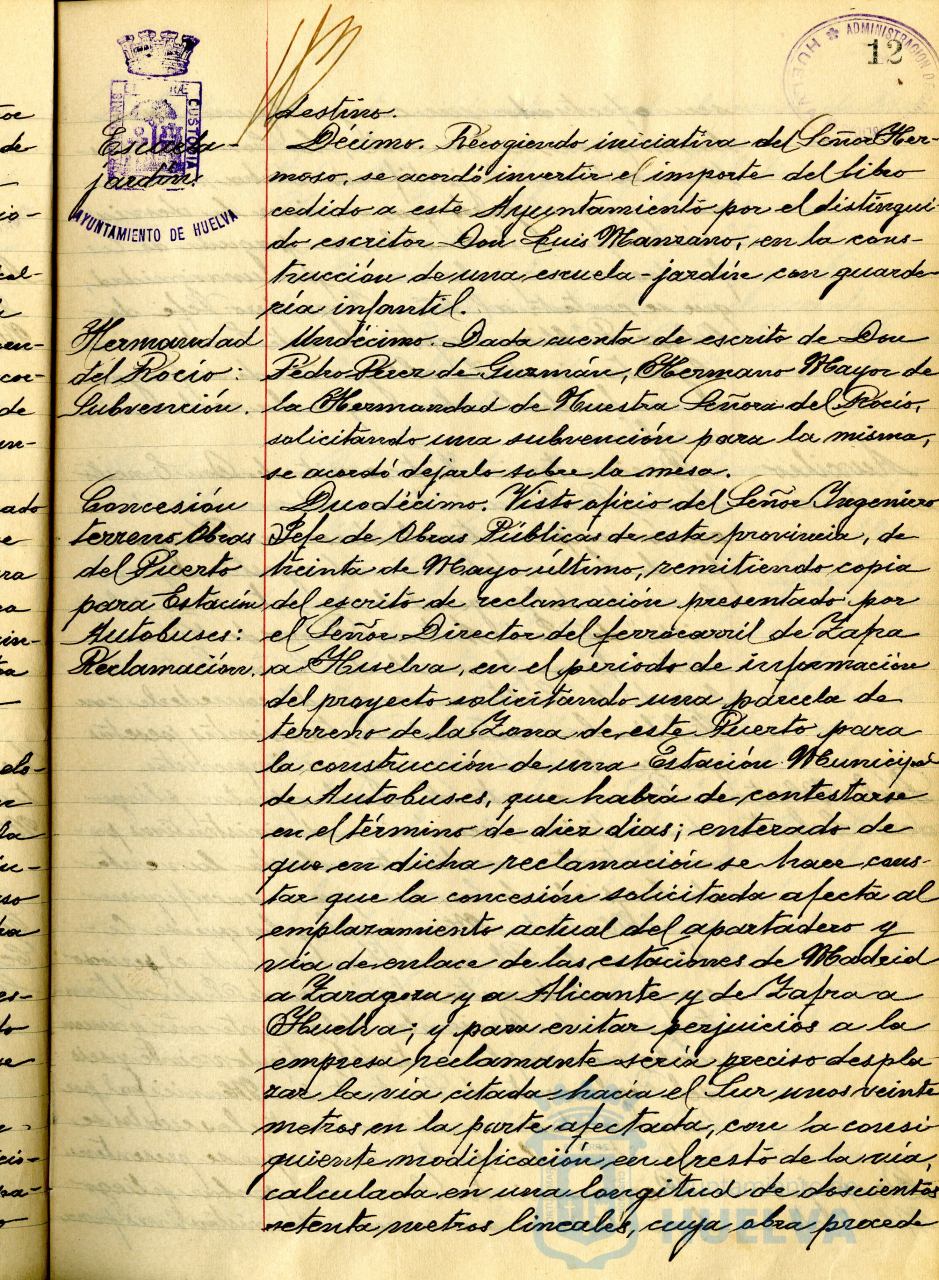 12
ADMINISTRACION DE
HUEL
CUSTODIA
AYUNTAMIENTO DE HUELVA
destino.
Escuela-
jardín.
Décimo. Recogiendo iniciativa del Señor Her-
moso, se acordó invertir el importe del libro
cedido a este Ayuntamiento por el distingui-
do escritor Don Luis Manzano, en la cons-
trucción de una escuela-jardín con guarde-
ría infantil.
Hermandad
del Rocío:
Subvención.
Undécimo. Dada cuenta de escrito de Don
Pedro Pérez de Guzmán, Hermano Mayor de
la Hermandad de Nuestra Señora del Rocío,
solicitando una subvención para la misma,
se acordó dejarlo sobre la mesa.
Concesión
terreno Obras
del Puerto
para Estación
Autobuses:
Reclamación.
Duodécimo. Visto oficio del Señor Ingeniero
Jefe de Obras Públicas de esta provincia, de
treinta de Mayo último, remitiendo copia
del escrito de reclamación presentado por
el Señor Director del ferrocarril de Zafra
a Huelva, en el periodo de información
del proyecto solicitando una parcela de
terreno de la Zona de este Puerto para
la construcción de una Estación Municipal
de Autobuses, que habrá de contestarse
en el término de diez dias; enterado de
que en dicha reclamación se hace cons-
tar que la concesión solicitada afecta al
emplazamiento actual del apartadero y
vía de enlace de las estaciones de Madrid
a Zaragoza y a Alicante y de Zafra a
Huelva; y para evitar perjuicios a la
empresa reclamante sería preciso despla
zar la vía citada hacia el Sur unos veinte
metros en la parte afectada, con la consi
guiente modificación en el resto de la vía,
calculada en una longitud de doscientos
setenta metros lineales, cuya obra procede
Ayuntamiento de
HUELVA